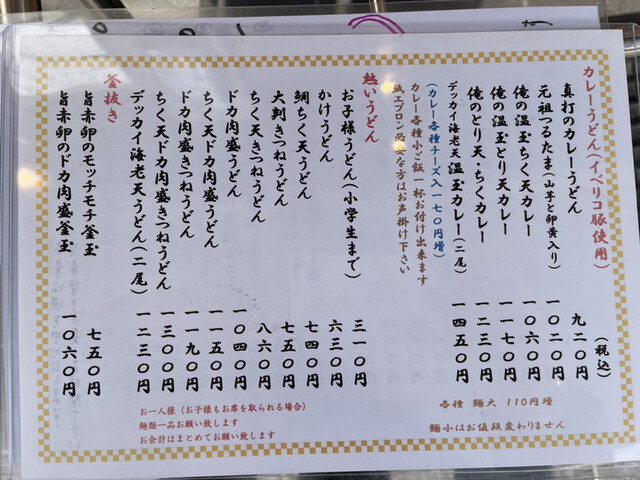 カレーうどん(イベリコ豚使用)
(税込)
真打のカレーうどん 九二〇円
元祖つるたま(山芋と卵黄入り) 一〇二〇円
俺の温玉ちく天カレー 一〇六〇円
俺の温玉とり天カレー 一一七〇円
俺のとり天・ちくカレー 一二三〇円
デッカイ海老天温玉カレー(二尾) 一四五〇円
(カレー各種チーズ入一七〇円増)
カレー各種小ご飯一杯お付け出来ます
紙エプロン必要な方はお声掛け下さい
熱いうどん
お子様うどん(小学生まで) 三一〇円
かけうどん 六三〇円
鯛ちくうどん 七四〇円
大判きつねうどん 七五〇円
ちく天きつねうどん 八六〇円
ドカ肉盛うどん 一〇四〇円
ちく天ドカ肉盛うどん 一一五〇円
ドカ肉盛きつねうどん 一一九〇円
ちく天ドカ肉盛きつねうどん 一三〇〇円
デッカイ海老天うどん(二尾) 一二三〇円
釜抜き
旨赤卵のモッチモチ釜玉 七五〇円
旨赤卵のドカ肉盛釜玉 一〇六〇円
各種 麺大 110円増
麺小はお値段変わりません
お一人様(お子様もお席を取られる場合)
麺類一品お願い致します
お会計はまとめてお願い致します